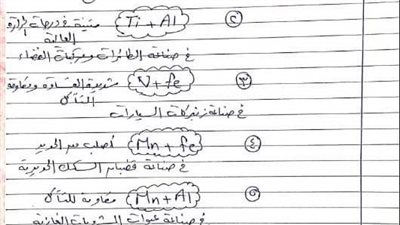 ② Ti + Al متينة فى درجات الحرارة
العالية
فى صناعة الطائرات ومركبات الفضاء
③ V + fe شديدة القساوة ومقاومة
التآكل
فى صناعة زنبركات السيارات
④ Mn + fe أصلب من الحديد
فى صناعة قضبان السكك الحديدية
⑤ Mn + Al مقاومة للتآكل
فى صناعة عبوات المشروبات الغازية